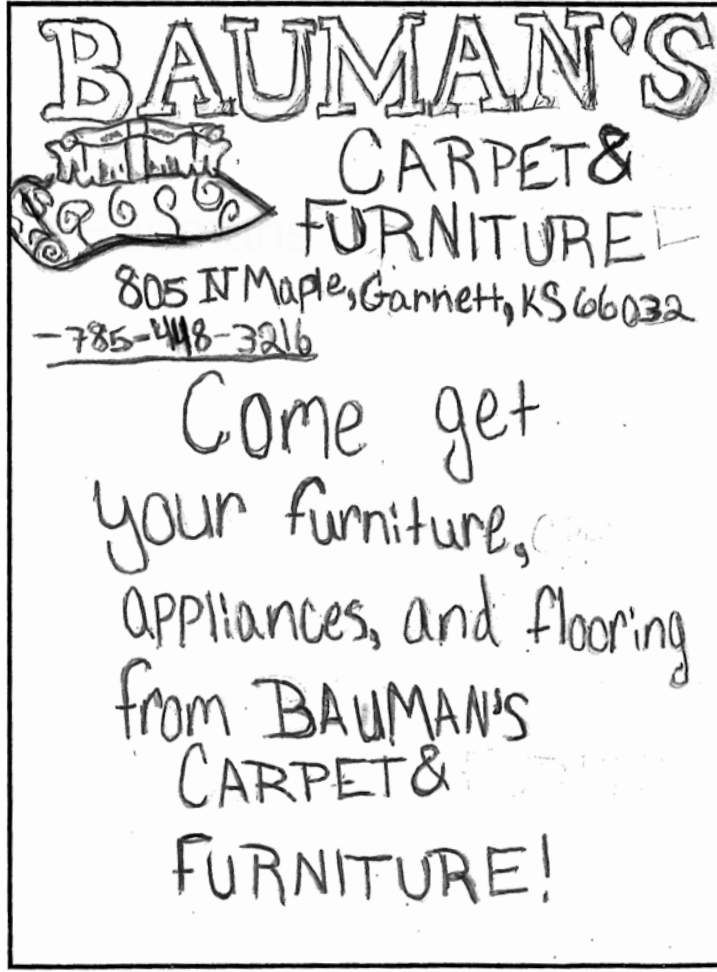 BAUMAN'S
CARPET &
FURNITURE
805 N Maple, Garnett, KS 66032
-785-448-3216
Come get
your furniture,
appliances, and flooring
from BAUMAN'S
CARPET &
FURNITURE!